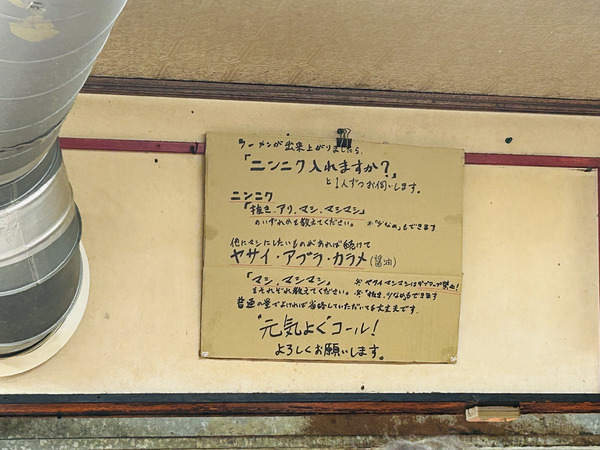 ラーメンが出来上がりましたら、
「ニンニク入れますか？」
と1人ずつお伺いします。
ニンニク
「抜き、アリ、マシ、マシマシ」
のいずれかを教えてください。 ※「少なめ」もできます
他にマシにしたいものがあれば続けて
ヤサイ・アブラ・カラメ(醤油)
「マシ、マシマシ」
をそれぞれ教えてください。 ※「抜き、少なめもできます
普通の量でよければ省略していただいても大丈夫です。
“元気よく”コール！
よろしくお願いします。